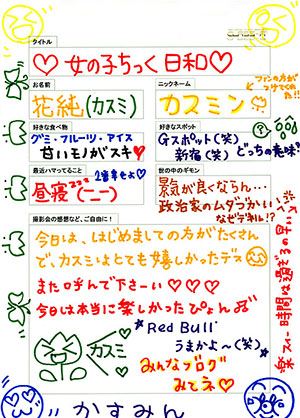 タイトル
♡女の子ちっく日和♡
お名前
花純(カスミ)
ニックネーム
カスミン
ファンの方が
つけてくれた!!
好きな食べ物
グミ・フルーツ・アイス
甘いモノがスキ♡
好きなスポット
Gスポット(笑)
新宿(笑)
どっちの意味?
最近ハマってること
昼寝
世の中のギモン
景気が良くならん…
政治家のムダづかい
なぜ予利!?
撮影会の感想など、ご自由に!
今日は、はじめましての方がたくさん
で、カスミはとても嬉しかったデス
また呼んで下さーい♡♡♡
今日は本当に楽しかったぴょん
"Red Bull"
うまかよ〜(笑)
カスミ♡
みんなブログ
みてネ♡
楽スィー時間は過ぎるの早い
かすみん